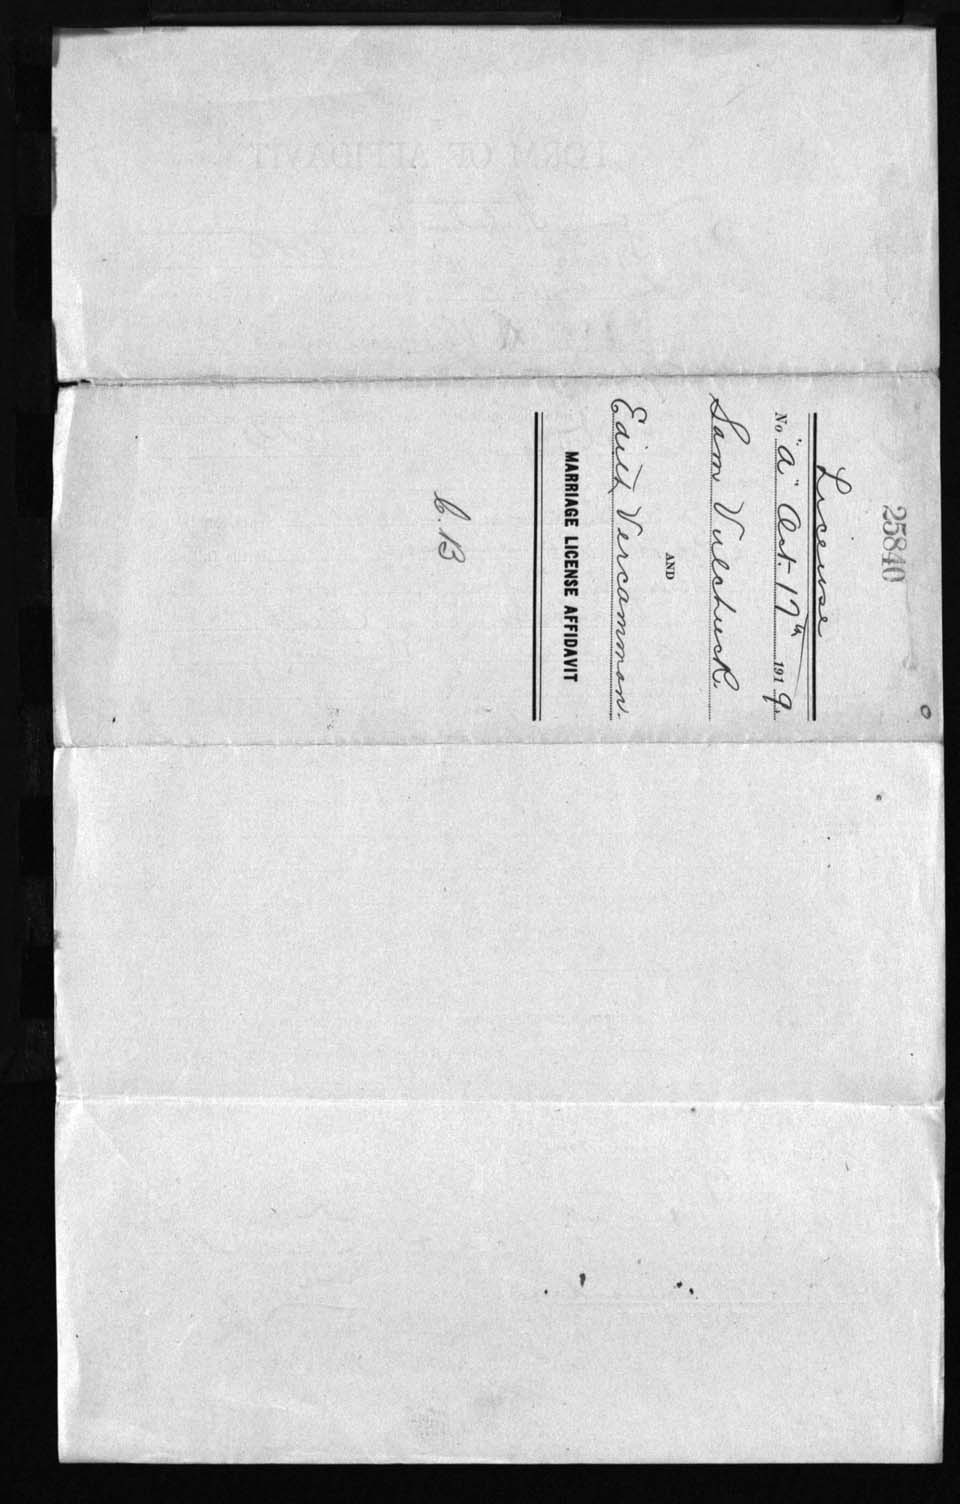 25840
License
No "a" Oct. 17th 1919.
Sam Vulchuck
AND
Edith Vercammon.
MARRIAGE LICENSE AFFIDAVIT
C.B
FORM OF AFFIDAVIT